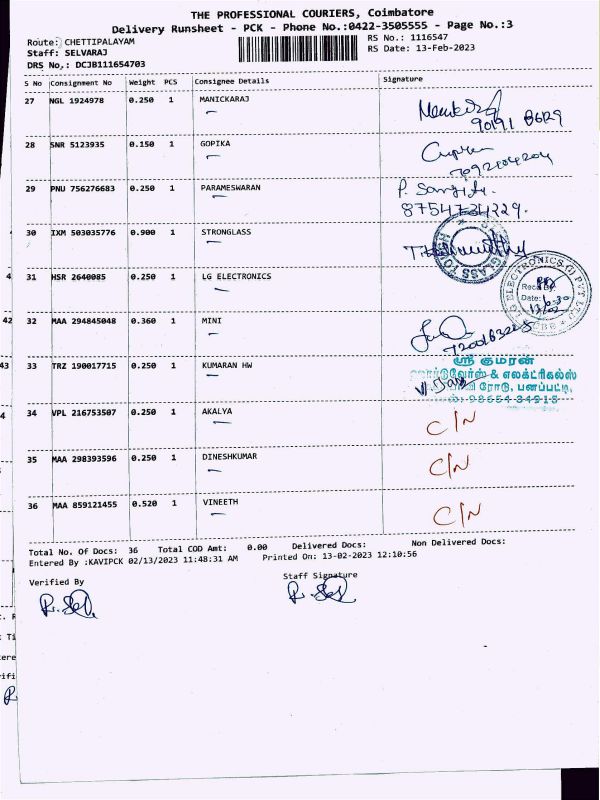 THE PROFESSIONAL COURIERS, Coimbatore
Delivery Runsheet - PCK - Phone No.:0422-3505555 - Page No.:3
Route: CHETTIPALAYAM
RS No.: 1116547
Staff: SELVARAJ
RS Date: 13-Feb-2023
DRS No,: DCJB111654703
S No Consignment No Weight PCS Consignee Details Signature
27 NGL 1924978 0.250 1 MANICKARAJ
28 SNR 5123935 0.150 1 GOPIKA
29 PNU 756276683 0.250 1 PARAMESWARAN P. Sangi
8754734229.
30 IXM 503035776 0.900 1 STRONGLASS
31 HSR 2640085 0.250 1 LG ELECTRONICS
LG ELECTRONICS (I) PVT LTD
Date:
32 MAA 294845048 0.360 1 MINI
33 TRZ 190017715 0.250 1 KUMARAN HW
ஸ்ரீ குமரன்
ஹார்டுவேர்ஸ் & எலக்ட்ரிகல்ஸ்
ரோடு, பனப்பட்டி,
98654 34918
34 VPL 216753507 0.250 1 AKALYA C/N
35 MAA 298393596 0.250 1 DINESHKUMAR C/N
36 MAA 859121455 0.520 1 VINEETH C/N
Total No. Of Docs: 36 Total COD Amt: 0.00 Delivered Docs: Non Delivered Docs:
Entered By :KAVIPCK 02/13/2023 11:48:31 AM Printed On: 13-02-2023 12:10:56
Verified By Staff Signature
R. Sel R. Sel